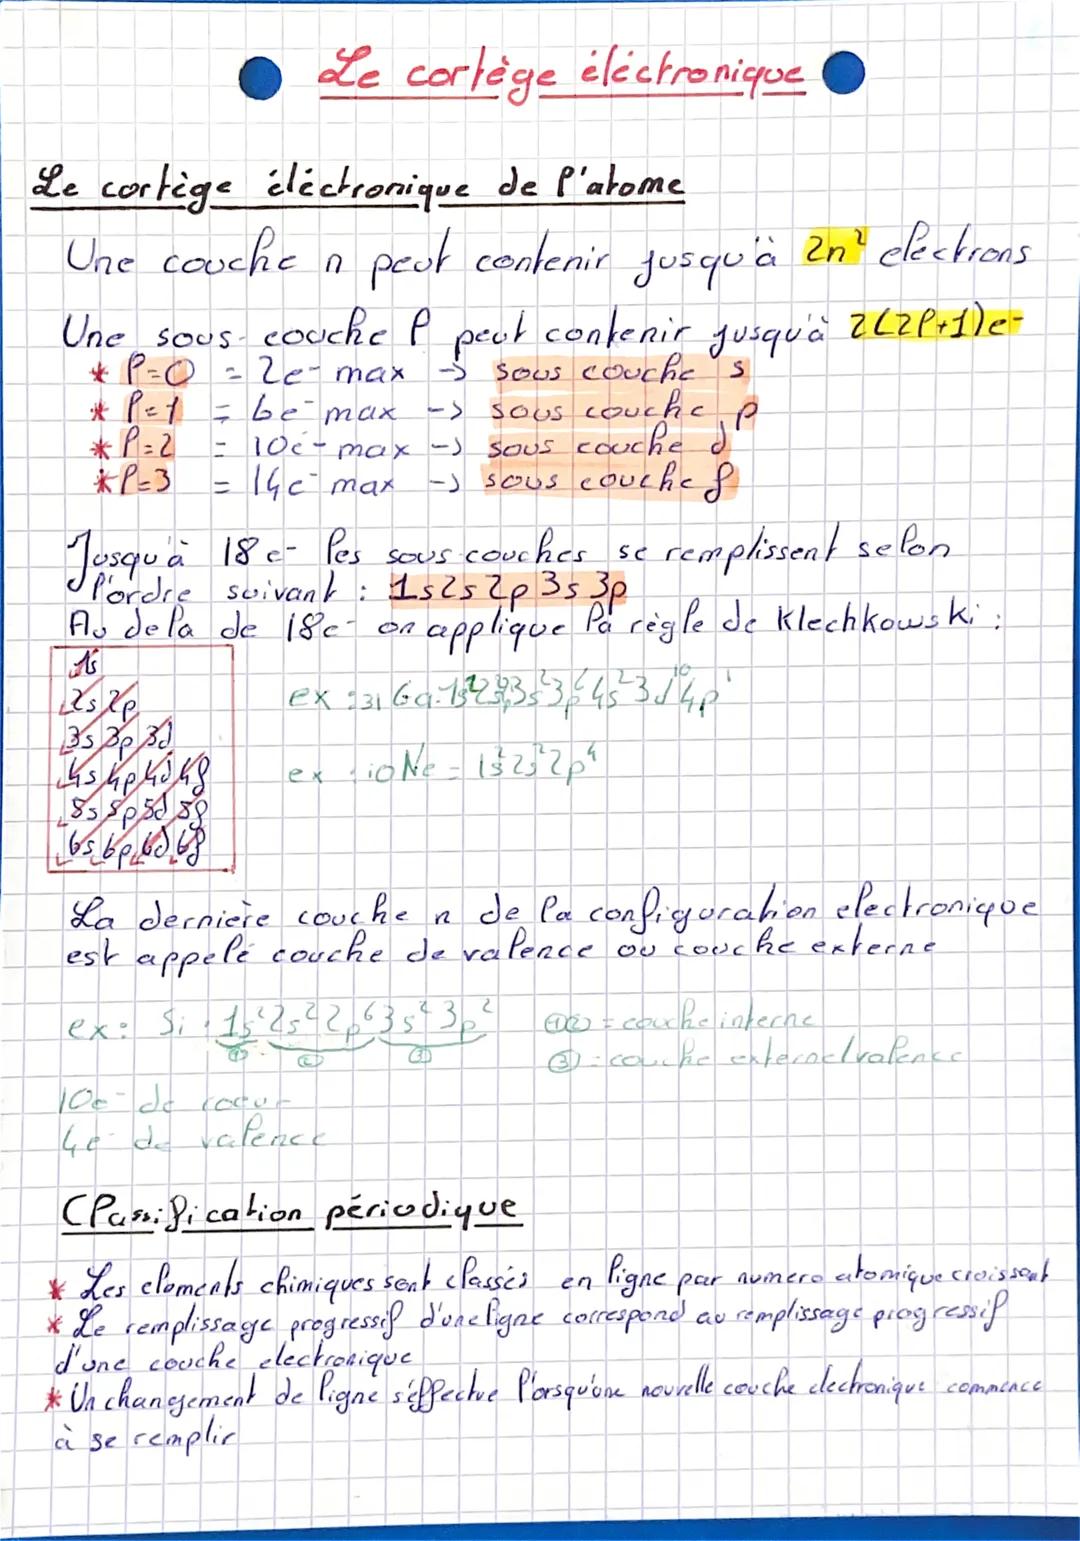 Le cortège éléctronique
Le cortège éléctronique de l'atome
Une couche n peut contenir jusqu'à 2n² electrons
Une sous-couche l peut contenir jusqu'à 2(2l+1)e-
* l=0 = 2e- max -> sous couche s
* l=1 = 6e- max -> sous couche p
* l=2 = 10e- max -> sous couche d
* l=3 = 14e- max -> sous couche f
Jusqu'à 18e- les sous-couches se remplissent selon
l'ordre suivant : 1s2s2p3s3p
Au dela de 18e- on applique la règle de Klechkowski :
1s
2s 2p
3s 3p 3d
4s 4p 4d 4f
5s 5p 5d 5f
6s 6p 6d 6f
ex : 31 Ga: 1s² 2s² 3s² 3p⁶ 4s² 3d¹⁰ 4p¹
ex : 10 Ne = 1s² 2s² 2p⁴
La derniere couche n de la configuration electronique
est appelé couche de valence ou couche externe
ex: Si : 1s² 2s² 2p⁶ 3s² 3p²
① ② ③
①② = couche interne
③ = couche externe/valence
10e- de coeur
4e- de valence
Classification périodique
* Les elements chimiques sont classés en ligne par numero atomique croissant
* Le remplissage progressif d'une ligne correspond au remplissage progressif
d'une couche electronique
* Un changement de ligne s'éffectue l'orsqu'une nouvelle couche electronique commence
à se remplir